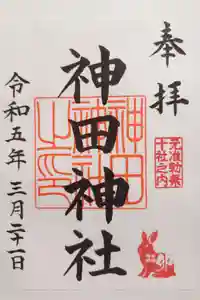 奉拝
元准勅祭
十社之内
神田神社
神田
神社
之印
令和五年三月二十一日